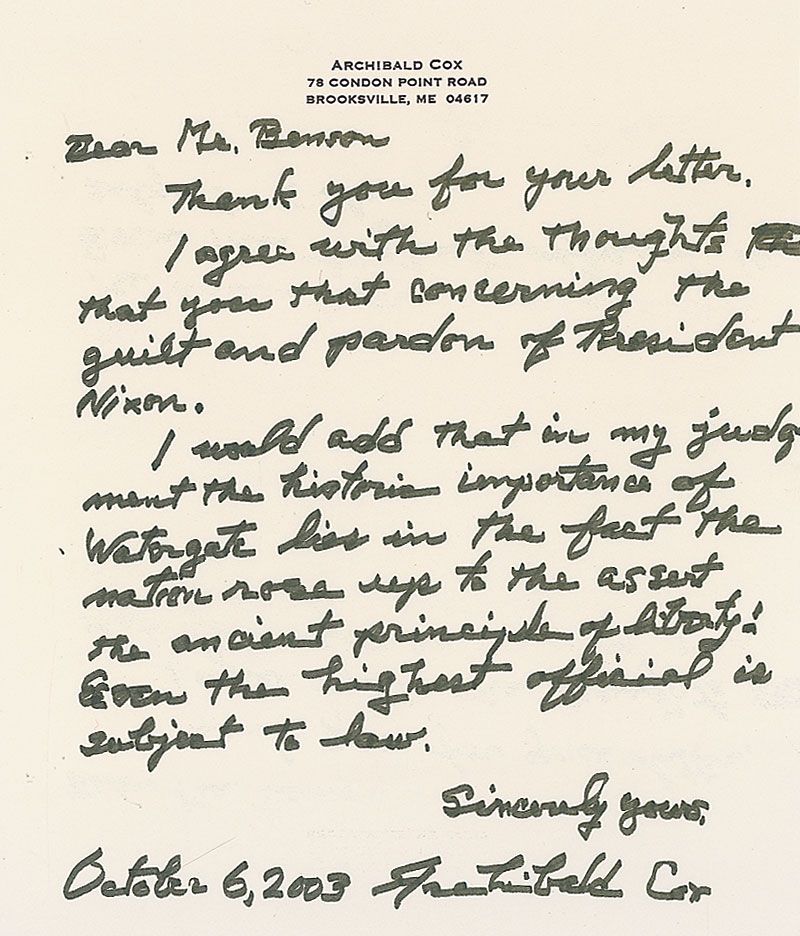 ARCHIBALD COX
78 CONDON POINT ROAD
BROOKSVILLE, ME 04617
Dear Mr. Benson
Thank you for your letter.
I agree with the thoughts
that you that concerning the
guilt and pardon of President
Nixon.
I would add that in my judg
ment the historic importance of
Watergate lies in the fact the
nation rose up to the assert
the ancient principle of liberty:
Even the highest official is
subject to law.
Sincerely yours,
October 6, 2003 Archibald Cox